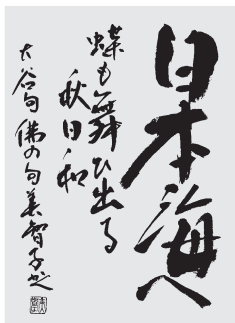 日本海へ
蝶も舞ひ出る
秋日和
大谷句佛の句 美智子書